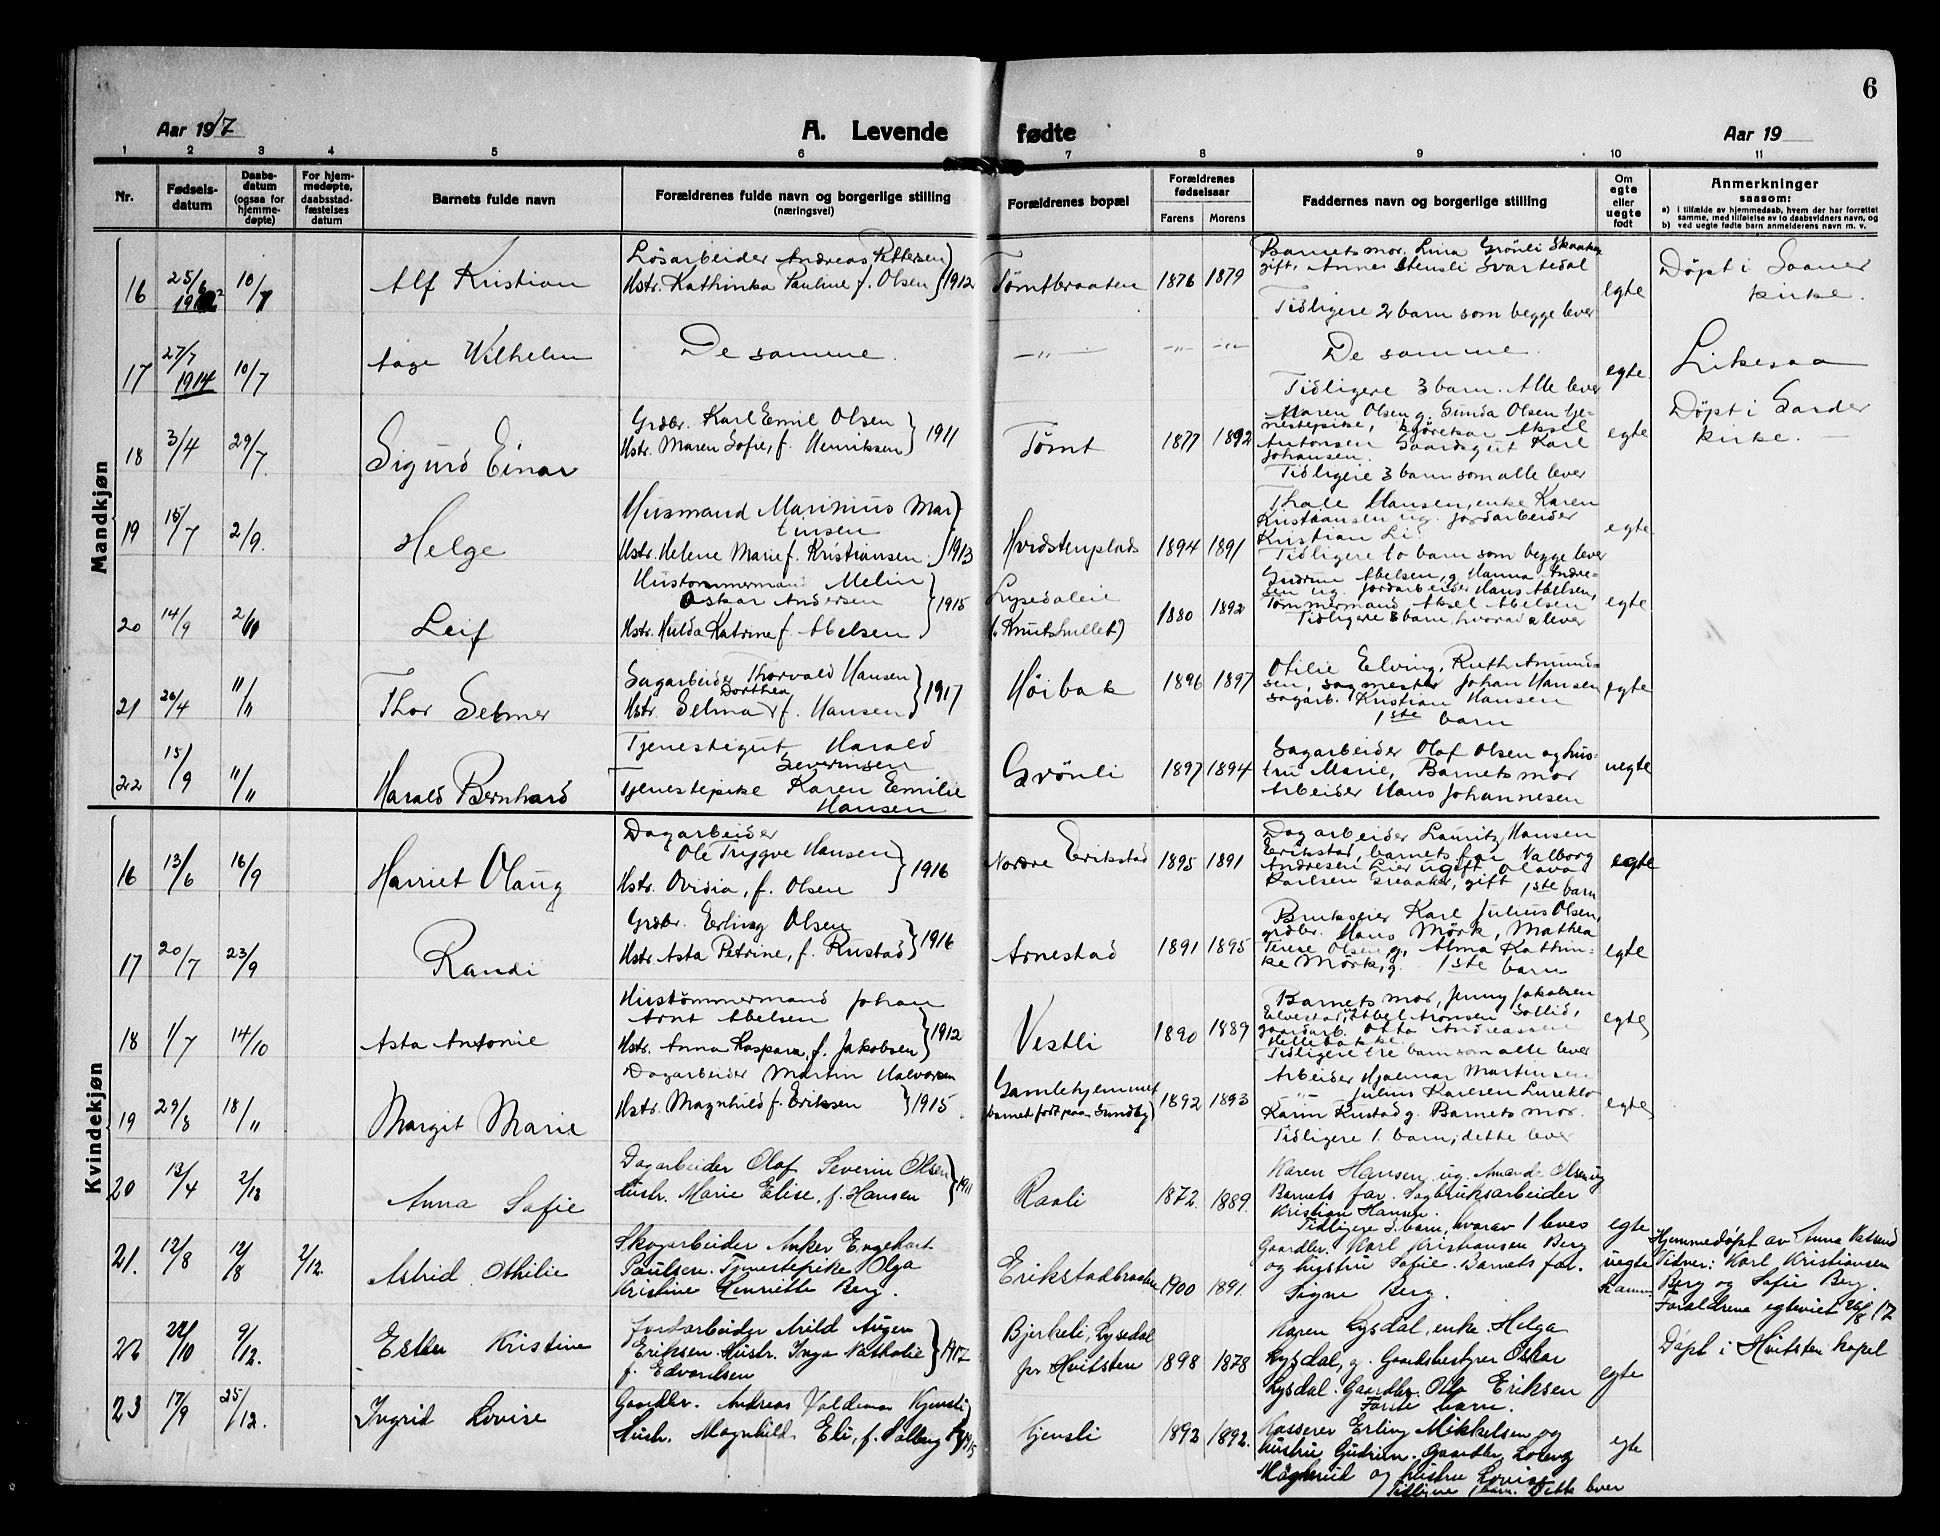 6
Aar 1917
A. Levende fødte
Aar 19
1 2 3 4 5 6 7 8 9 10 11
Nr.
Fødsels-
datum
Daabs-
datum
(ogsaa for
hjemme-
døpte)
For hjem-
medøpte,
daabsstad-
fæstelses
datum
Barnets fulde navn
Forældrenes fulde navn og borgerlige stilling
(næringsvei)
Forældrenes bopæl
Forældrenes
fødselsaar
Farens
Morens
Faddernes navn og borgerlige stilling
Om
egte
eller
uegte
født
Anmerkninger
saasom:
a) i tilfælde av hjemmedaab, hvem der har forrettet
samme, med tilføielse av to daabsvidners navn, og
b) ved uegte fødte barn anmelderens navn m. v.
Mandkjøn
16 25/6 1912 10/7 Alf Kristian
Løsarbeider Andreas Pettersen
Hstr. Kathinka Pauline f. Olsen } 1912
Tømtbraaten 1876 1879
Barnets mor, Lina Grønli Skaaker
gift, Anna Stensli Svartedal
Tidligere 2 barn som begge lever
egte
Døpt i Saaner
kirke.
17 27/7 1914 10/7 Aage Wilhelm
De samme.
–„– –„– –„–
De samme.
Tidligere 3 barn. Alle lever
egte.
Likesaa
18 3/4 29/7 Sigurd Einar
Grdbr. Karl Emil Olsen
Hstr. Maren Sofie, f. Henriksen } 1911
Tømt 1877 1892
Maren Olsen g. Gunda Olsen tje-
nestepike, kjørekar Aksel
Antonsen Gaardsgut Karl
Johansen.
Tidligere 3 barn som alle lever
egte
Døpt i Garder
kirke. –
19 15/7 2/9. Helge
Husmand Marinius Mar
tinsen
Hstr. Helene Marie f. Kristiansen. } 1913
Hvidstenplads 1894 1891
Thale Hansen, enke Karen
Kristiansen ug. jordarbeider
Kristian Li
Tidligere to barn som begge lever
egte
20 14/9 Leif
Hustømmermand Melin
Oskar Andersen
Hstr. Hulda Katrine f. Abelsen } 1915
Lysedaleie
(Knutshullet) 1880 1892
Gudrun Abelsen, g. Hanna Andre-
sen ug. Jordarbeider Hans Abelsen,
Tømmermand Aksel Abelsen
Tidligere 3 barn, hvorav 2 lever
egte
21 26/4 11/11 Thor Selmer
Sagarbeider Thorvald Hansen
Dorthea
Hstr. Selma f. Hansen } 1917
Høibak 1896 1897
Otilie Elving, Ruth Amund-
sen, sagmester Johan Hansen
sagarb. Kristian Hansen
1ste barn
egte
22 15/9 11/11 Harald Bernhard
Tjenestegut Harald
Severinsen
Tjenestepike Karen Emilie
Hansen
Grönli 1897 1894
Sagarbeider Olaf Olsen og hus-
tru Marie, Barnets mor
Arbeider Hans Johannesen
uegte
Kvindekjøn
16 13/6 16/9 Harriet Olaug
Dagarbeider
Ole Trygve Hansen
Hstr. Ovidia, f. Olsen } 1916
Nordre Erikstad 1895 1891
Dagarbeider Lauritz Hansen
Erikstad, barnets far Valborg
Andresen Lier ugift Olava
Karlsen Greaaker, gift 1ste barn
egte
17 20/7 23/9 Randi
Grdbr. Erling Olsen
Hstr. Asta Petrine, f. Rustad } 1916
Arnestad 1891 1895
Brukseier Karl Julius Olsen,
grdbr. Hans Mörk, Mathea
Terese Olsen g. Alma Kathin-
ke Mörk, g. 1ste barn
egte
18 1/7 14/10 Asta Antonie
Hustømmermand Johan
Arnt Abelsen
Hstr. Anna Kaspara, f. Jakobsen } 1912
Vestli 1890 1889
Barnets mor, Jenny Jakobsen
Elvestad, Abel Aronsen Sollid,
gaardarb. Otto Andreassen
Hellebakke
Tidligere tre barn som alle lever
egte
19 29/8 18/11 Margit Marie
Dagarbeider Martin Halvorsen
Hstr. Magnhild f. Eriksen } 1915
Gamlehjemmet
(barnet født paa Sundby) 1892 1893
Arbeider Hjalmar Martinsen
–„– Julius Karlsen
Karin Rustad g. Barnets mor.
Tidligere 1. barn, dette lever
egte
20 13/4 Anna Sofie
Dagarbeider Olaf Severin Olsen
Hustr. Marie Elise, f. Hansen } 1911
Raali 1872. 1889.
Karen Hansen, ug. Amanda Olsen ug
Barnets far. Sagbruksarbeider
Kristian Hansen.
Tidligere 3. barn, hvorav 1 leves
egte
21. 12/8 12/8 2/12. Astrid Othilie
Skogarbeider Anker Engehart
Paulsen. Tjenestepike Olga
Kristine Henriette Berg.
Erikstadbraaten 1900 1891.
Gaardbr. Karl Kristiansen Berg
og hustru Sofie. Barnets far.
Signe Berg.
uegte
Hjemmedøpt av Anna
Vidner: Karl Kristiansen
Berg og Sofie Berg.
Forældrene egteviet 26/8 17
22 22/10 9/12. Ester Kristine
Jordarbeider Arild August
Eriksen. Hustr. Inga Nathalie
f. Edvardsen } 1917
Bjerkeli, Lysedal
pr Hvitsten 1898 1878
Karen Lysdal, enke. Helga
Lysdal, g. Gaardsbestyrer Oskar
Lysdal. Gaardbr. Otto Eriksen
Første barn.
egte
Døpt i Hvitsten kapel
23 17/9 25/12. Ingrid Lovise
Gaardbr. Andreas Valdemar Kjensli
Hustr. Magnhild Eli, f. Solberg } 1915
Kjensli 1892 1892.
Kasserer Erling Mikkelsen og
hustru Gudrun. Gaardbr. Lorang
Haghend og hustru Lovise
Tidligere 1 barn. Dette lever
egte